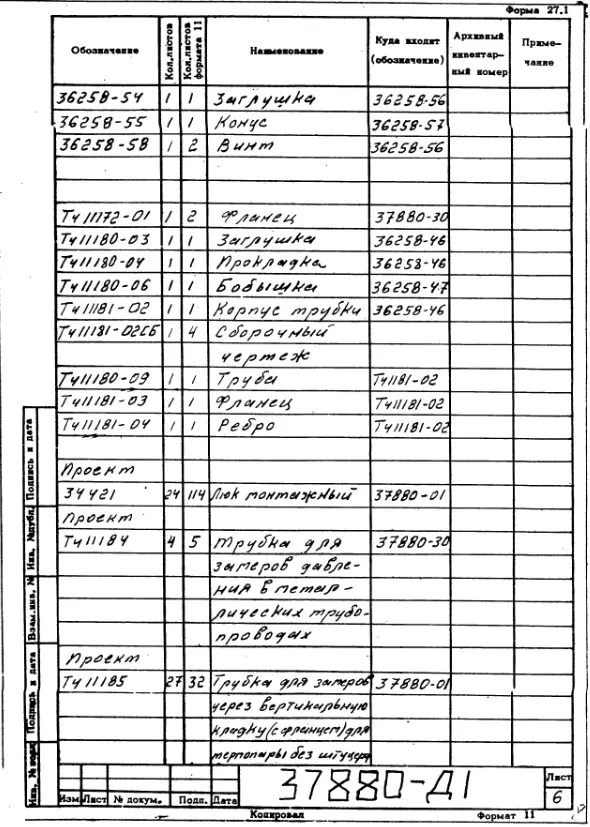 Форма 27.1
Обозначение | Кол.листов | Кол.листов формата 11 | Наименование | Куда входит (обозначение) | Архивный инвентарный номер | Примечание
36258-54 | 1 | 1 | Заглушка | 36258-56
36258-55 | 1 | 1 | Конус | 36258-57
36258-58 | 1 | 2 | Винт | 36258-56
Тч11172-01 | 1 | 2 | Фланец | 37880-30
Тч11180-03 | 1 | 1 | Заглушка | 36258-46
Тч11180-04 | 1 | 1 | Прокладка | 36258-46
Тч11180-06 | 1 | 1 | Бобышка | 36258-47
Тч11181-02 | 1 | 1 | Корпус трубки | 36258-46
Тч11181-02СБ | 1 | 4 | Сборочный
чертеж
Тч11180-09 | 1 | 1 | Труба | Тч11181-02
Тч11181-03 | 1 | 1 | Фланец | Тч11181-02
Тч11181-04 | 1 | 1 | Ребро | Тч11181-02
Проект
34421 | 24 | 114 | Люк монтажный | 37880-01
Проект
Тч11184 | 4 | 5 | Трубка для | 37880-30
замеров давле-
ния в метал-
лических трубо-
проводах
Проект
Тч11185 | 27 | 32 | Трубка для замеров | 37880-01
через вертикальную
кладку (с фланцем) для
термопары без штуцера
Подпись и дата
Инв. №дубл.
Взам.инв. №
Подпись и дата
Инв. № подл.
Изм | Лист | № докум. | Подп. | Дата
37880-Д1
Лист
6
Копировал
Формат 11